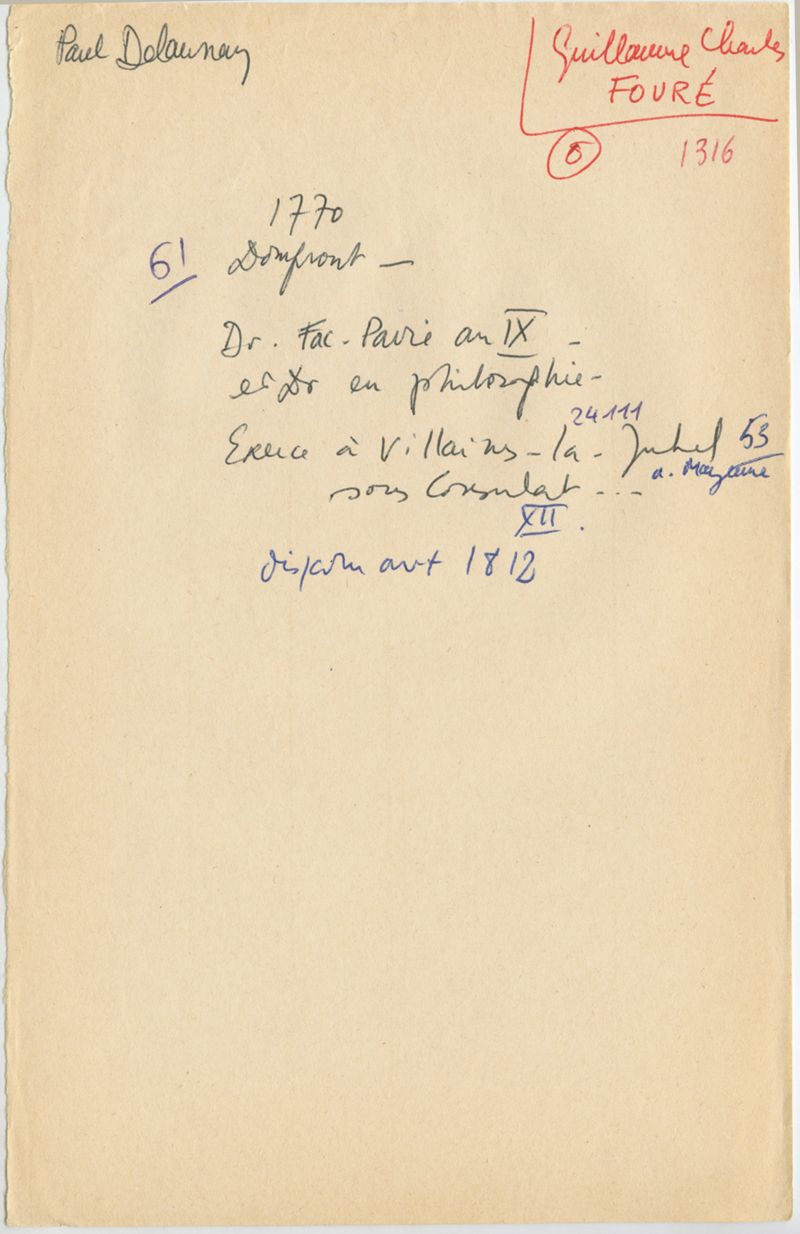 Paul Delaunay
Guillaume Charles
FOURÉ
6 1316
1770
61 Domfront —
Dr. Fac. Paris an IX -
et Dr en philosophie -
24111
Exerce à Villaines-la-Juhel 53
a. Mayenne
sous Consulat ...
XII.
avt 1812